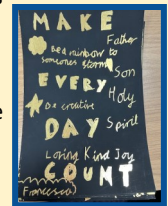 MAKE
Father
Be a rainbow to
someones storm
EVERY
Son
Holy
Be creative
DAY
Spirit
Loving Kind Joy
COUNT
Francesca